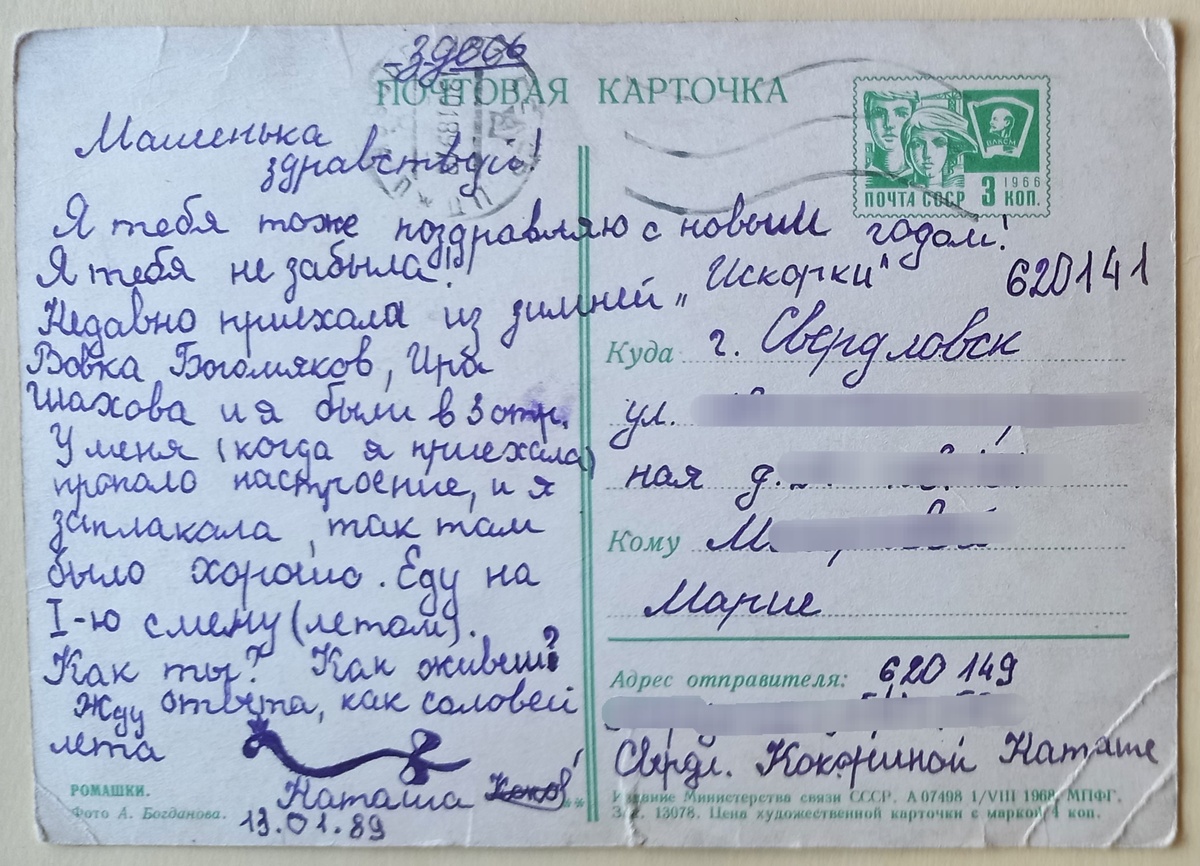 Здесь
ПОЧТОВАЯ КАРТОЧКА
ВЛКСМ
1966
ПОЧТА СССР 3 КОП.
Машенька
здравствуй!
Я тебя тоже поздравляю с новым годом!
Я тебя не забыла!
Недавно приехала из зимней „Искорки"
Вовка Богомяков, Ира
Шахова и я были в 3 отр.
У меня (когда я приехала)
пропало настроение, и я
заплакала, так там
было хорошо. Еду на
I-ю смену (летом).
Как ты? Как живёшь?
Жду ответа, как соловей
лета
Наташа
13.01.89
РОМАШКИ.
Фото А. Богданова.
620141
Куда г. Свердловск
ул.
ная д.
Кому М.
Марие
Адрес отправителя: 620 149
Свердл. Кокориной Наташе
Издание Министерства связи СССР. А 07498 1/VIII 1968 МПФГ.
Зак. 13078. Цена художественной карточки с маркой 4 коп.